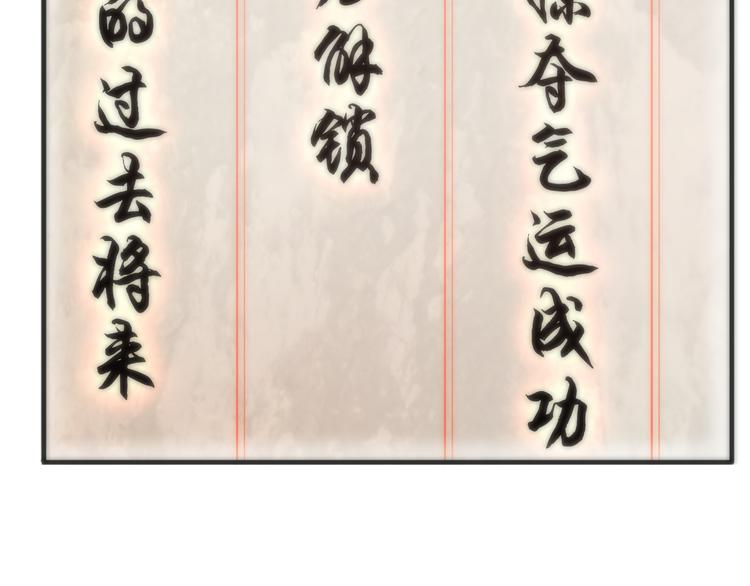 夺气运成功
解锁
的过去将来